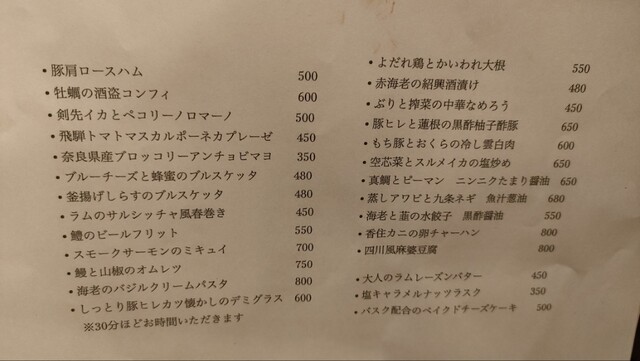 ・豚肩ロースハム 500
・牡蠣の酒盗コンフィ 600
・剣先イカとペコリーノロマーノ 500
・飛騨トマトマスカルポーネカプレーゼ 450
・奈良県産ブロッコリーアンチョビマヨ 350
・ブルーチーズと蜂蜜のブルスケッタ 480
・釜揚げしらすのブルスケッタ 480
・ラムのサルシッチャ風春巻き 450
・鱧のビールフリット 550
・スモークサーモンのミキュイ 700
・鰻と山椒のオムレツ 750
・海老のバジルクリームパスタ 800
・しっとり豚ヒレカツ懐かしのデミグラス 600
※30分ほどお時間いただきます
・よだれ鶏とかいわれ大根 550
・赤海老の紹興酒漬け 480
・ぶりと搾菜の中華なめろう 450
・豚ヒレと蓮根の黒酢柚子酢豚 650
・もち豚とおくらの冷し雲白肉 600
・空芯菜とスルメイカの塩炒め 650
・真鯛とピーマン ニンニクたまり醤油 650
・蒸しアワビと九条ネギ 魚汁葱油 680
・海老と韮の水餃子 黒酢醤油 550
・香住カニの卵チャーハン 800
・四川風麻婆豆腐 800
・大人のラムレーズンバター 450
・塩キャラメルナッツラスク 350
・バスク配合のベイクドチーズケーキ 500